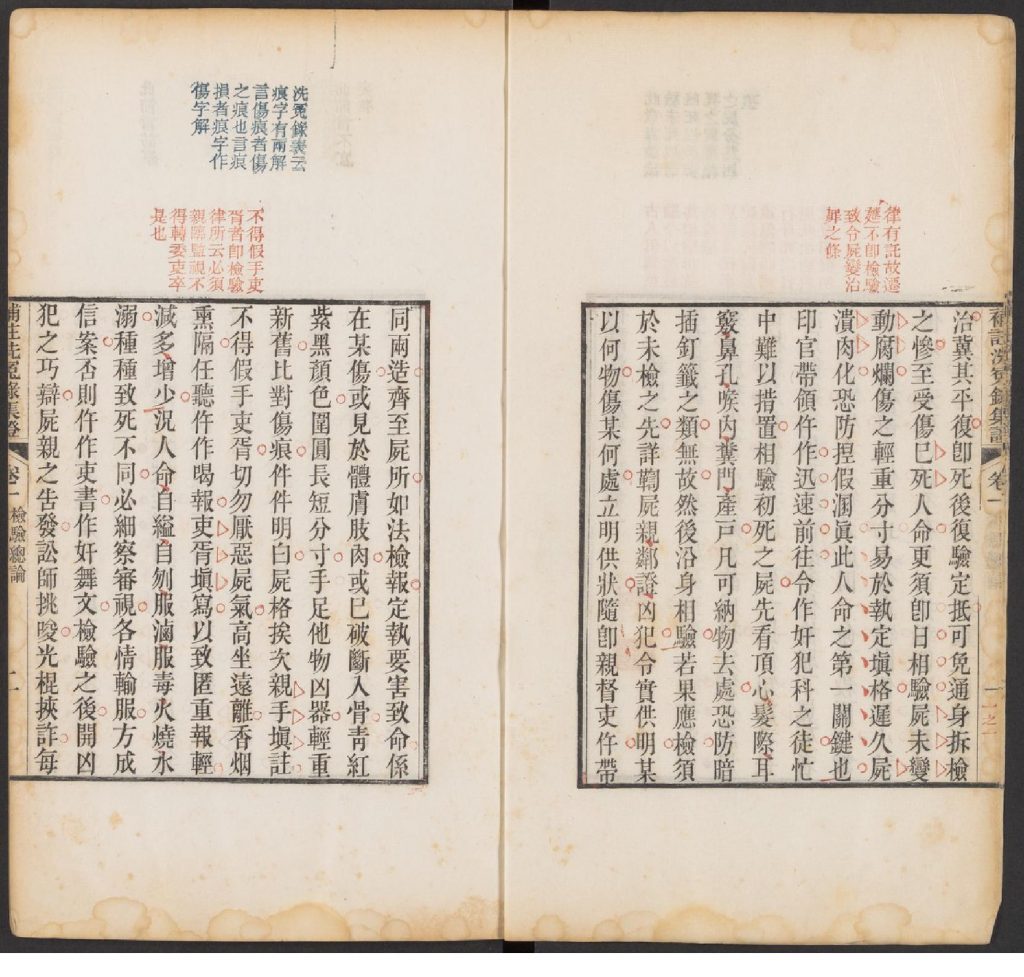 律有託故遷
延不即檢驗
致令屍變治
罪之條
補註洗冤錄集證
卷一
治冀其平復卽死後復驗定抵可免通身拆檢
之慘至受傷已死人命更須卽日相驗屍未變
動腐爛傷之輕重分寸易於執定塡格遲久屍
潰肉化恐防揑假溷眞此人命之第一關鍵也
印官帶領仵作迅速前往令作奸犯科之徒忙
中難以措置相驗初死之屍先看頂心髮際耳
竅鼻孔喉內糞門產戸凡可納物去處恐防暗
插釘籤之類無故然後沿身相驗若果應檢須
於未檢之先詳鞫屍親鄰證凶犯令實供明某
以何物傷某何處立明供狀隨卽親督吏仵帶
洗冤錄表云
痕字有兩解
言傷痕者傷
之痕也言痕
損者痕字作
傷字解
不得假手吏
胥者卽檢驗
律所云必須
親臨監視不
得轉委吏卒
是也
同兩造齊至屍所如法檢報定執要害致命係
在某傷或見於體膚肢肉或已破斷入骨靑紅
紫黑顏色圍圓長短分寸手足他物凶器輕重
新舊比對傷痕件件明白屍格挨次親手塡註
不得假手吏胥切勿厭惡屍氣高坐遠離香烟
熏隔任聽仵作喝報吏胥塡寫以致匿重報輕
減多增少況人命自縊自刎服滷服毒火燒水
溺種種致死不同必細察審視各情輸服方成
信案否則仵作吏書作奸舞文檢驗之後開凶
犯之巧辯屍親之吿發訟師挑唆光棍挾詐每
補註洗冤錄集證
卷一
檢驗總論
二